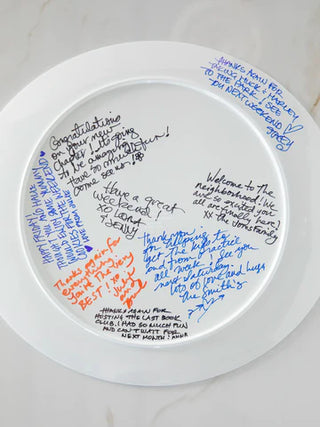 THANKS AGAIN FOR
TAKING MUCK & MARLEY
TO THE PARK! SEE
YOU NEXT WEEKEND
Congratulations
on your new
chapter! It's going
to be amazing!
Have so much fun!
Come see us!
Have a great
weekend!
xo Land
JENNY
Welcome to the
neighborhood! We are
so excited you
all are finally here!
xx the Jones Family
Thank you
for helping to
get the kids to
and from practice
all week! See you
next Saturday.
lots of love and hugs
the Smith's
Thanks again for
everything
You're the very
BEST! xo
THANKS AGAIN FOR
HOSTING THE LAST BOOK
CLUB. I HAD SO MUCH FUN
AND CAN'T WAIT FOR
NEXT MONTH! ANNA